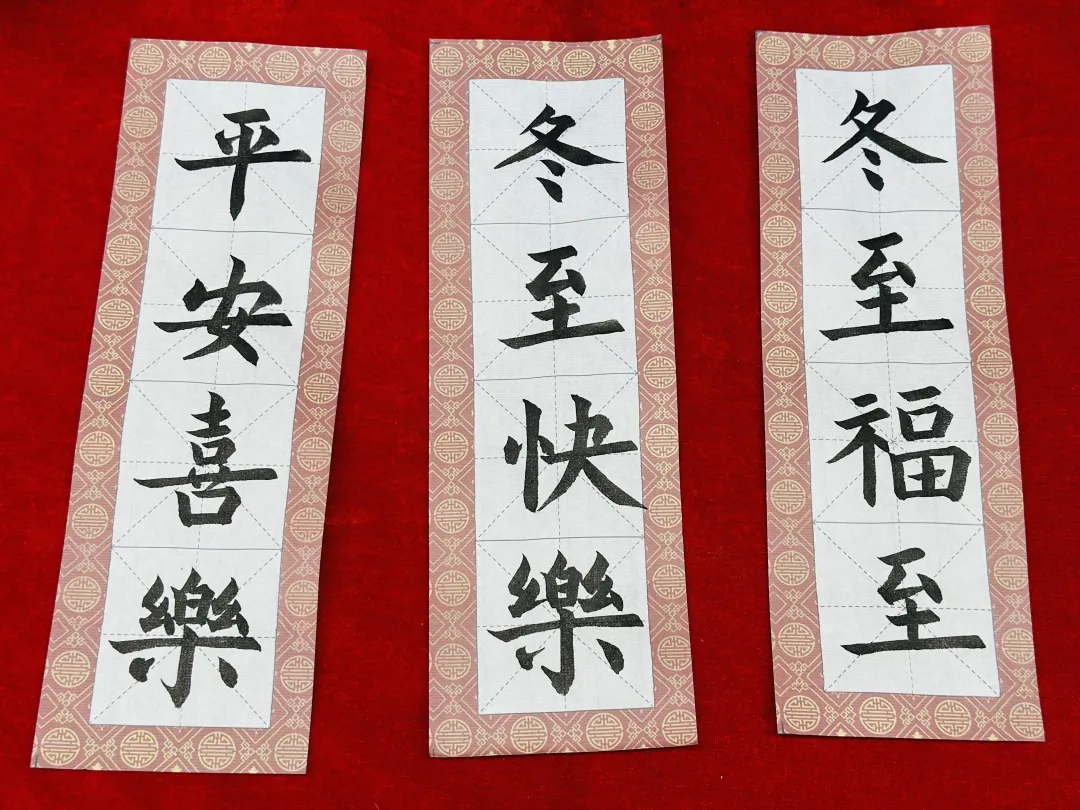 冬至福至
冬至快樂
平安喜樂